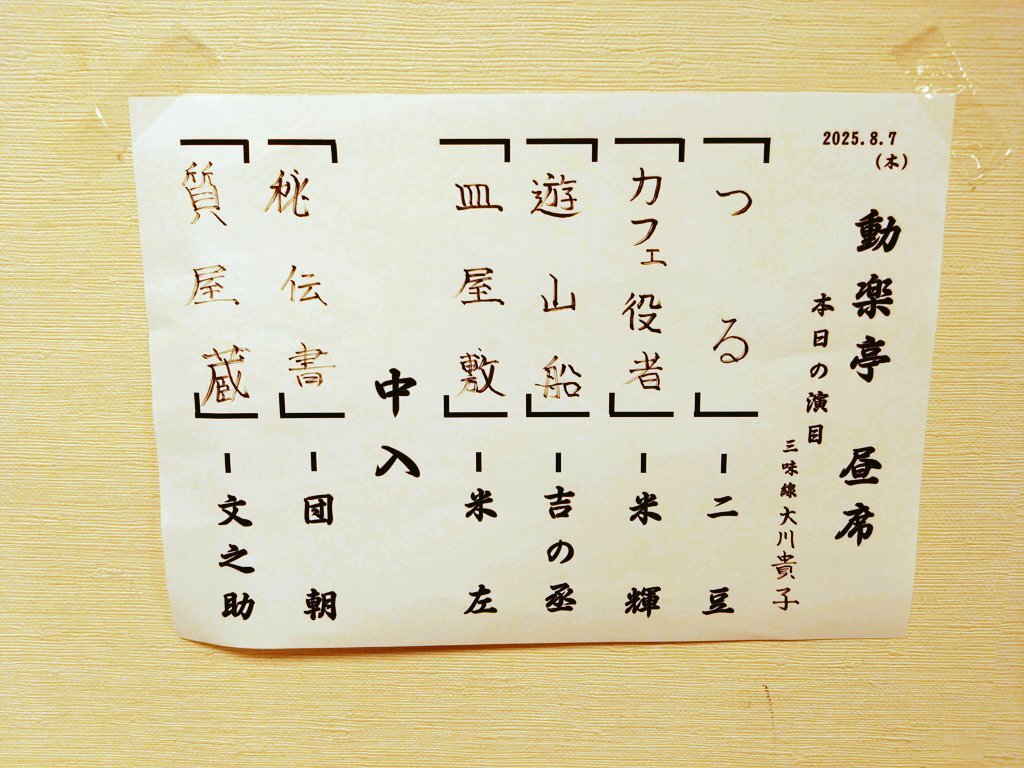 2025.8.7
(木)
動楽亭 昼席
本日の演目
三味線 大川貴子
「つる」-二豆
「カフェ役者」-米輝
「遊山船」-吉の丞
「皿屋敷」-米左
中入
「秘伝書」-団朝
「質屋蔵」-文之助